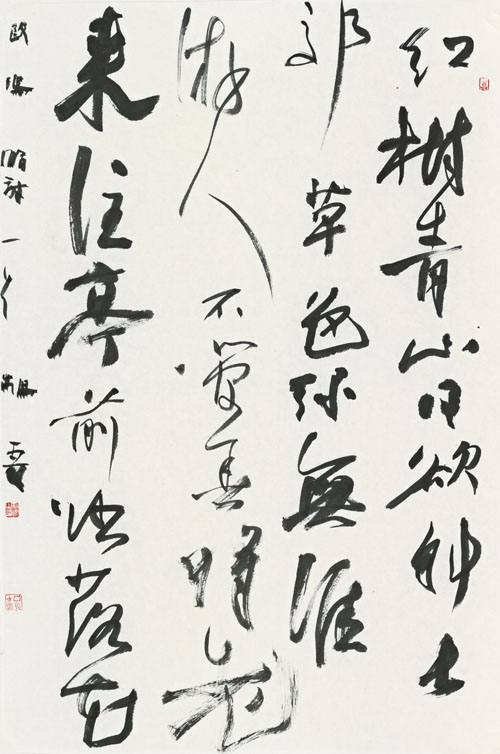 红樹青山日欲斜长
郊草色绿無涯
游人不管春將老
来往亭前踏落花
欧陽脩詩一首